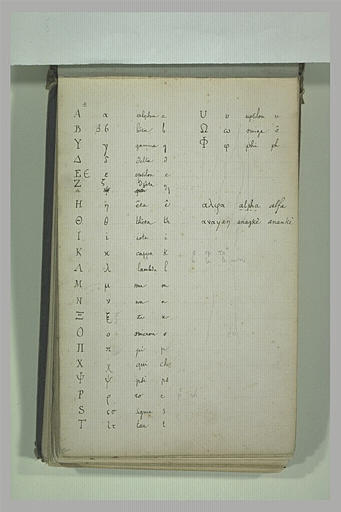 A α alpha a
B β.6 b
Y γ gamma g
Δ δ delta d
E ε e epsilon e
Z ξ dzeta
dz
H η êta ê
Θ θ thêta th
I i iota i
K κ cappa k
Λ λ lambda l
M μ mu m
N ν nu n
Ξ ξ xi x
O o omicron o
Π π pi p
X χ qui ch
Ψ ψ psi ps
P ρ ro r
S σ sigma s
T τ tau t
U υ upsilon u
Ω ω omega ô
Φ φ phi ph
αλφα alpha alfa
αναγκη anagkê ananké